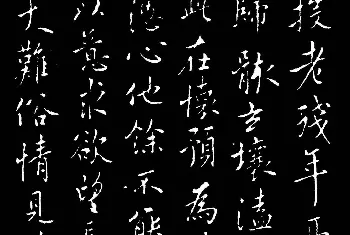 投老殘年
歸骸玄壤溘
此在懷預為
心他餘不能
以意求欲望
大難俗情見